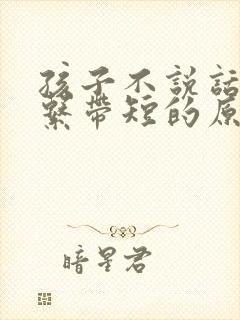 孩子不說話
繫帶短的原
暗星君